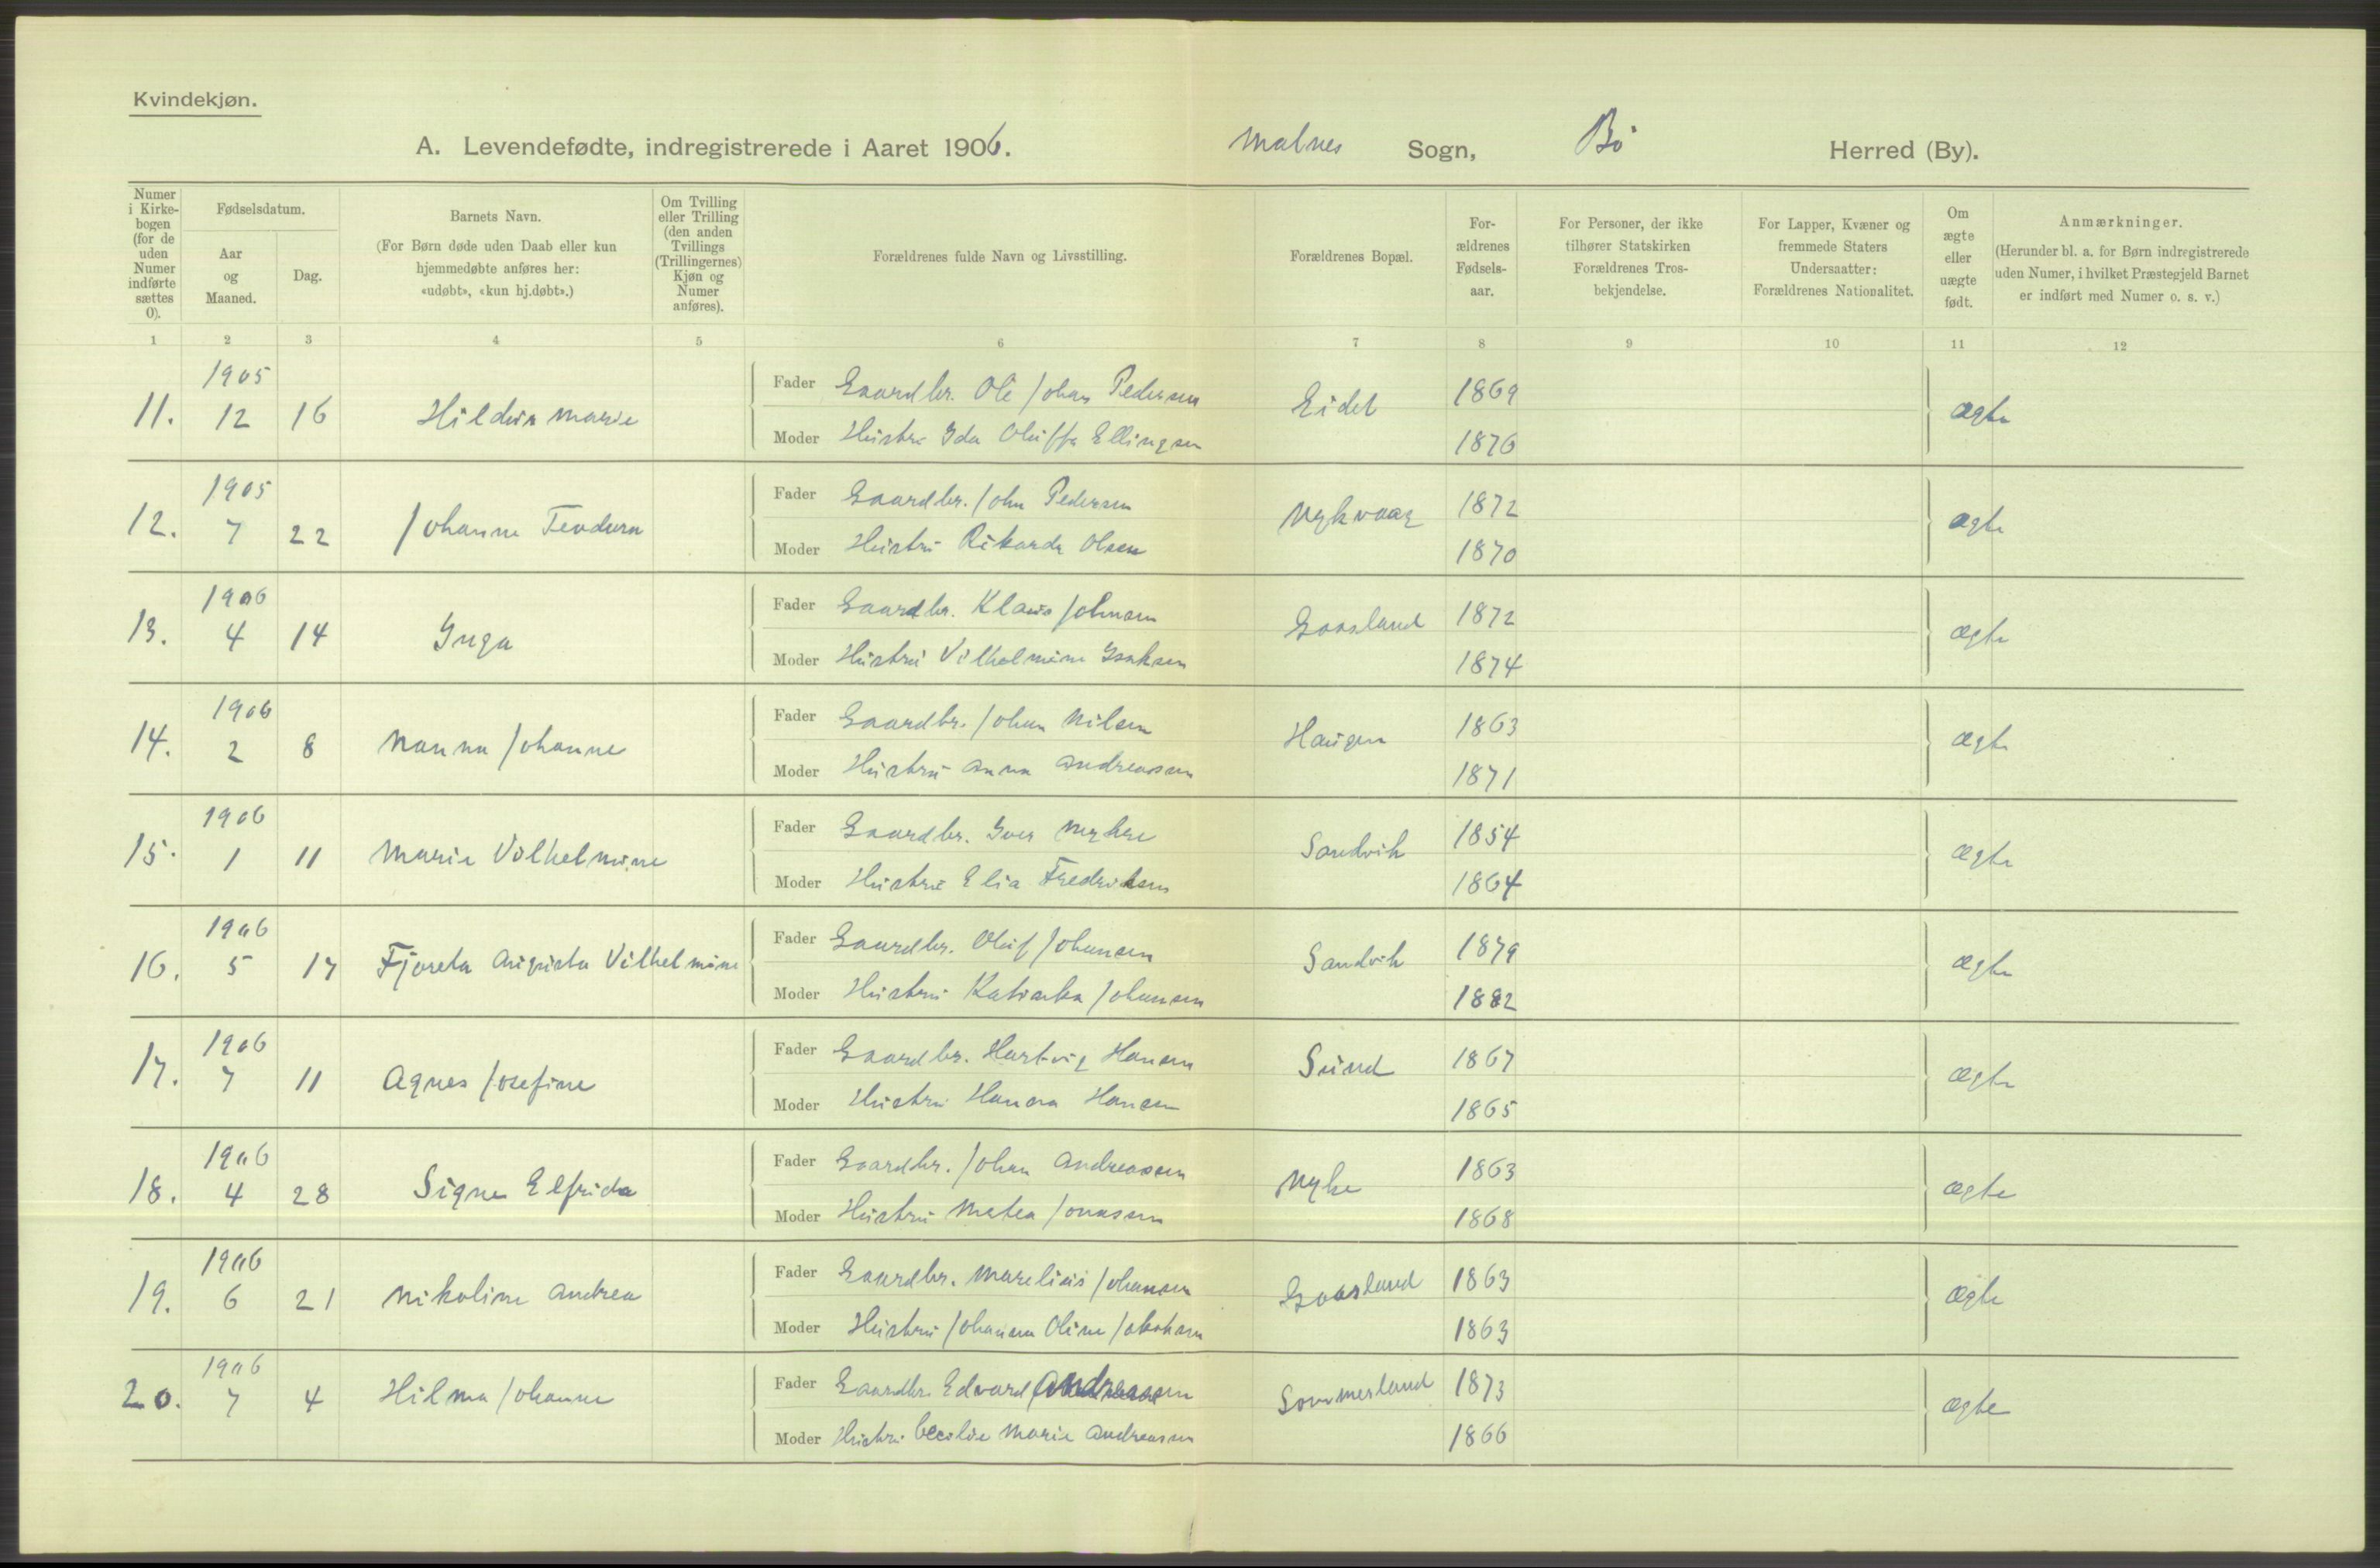 Kvindekjøn.
A. Levendefødte, indregistrerede i Aaret 1906. Malnes Sogn, Bö Herred (By).
Numer i Kirke-bogen (for de uden Numer indførte sættes 0).
Fødselsdatum.
Aar og Maaned.
Dag.
Barnets Navn.
(For Børn døde uden Daab eller kun hjemmedøbte anføres her: «udøbt», «kun hj.døbt».)
Om Tvilling eller Trilling (den anden Tvillings (Trillingernes) Kjøn og Numer anføres).
Forældrenes fulde Navn og Livsstilling.
Forældrenes Bopæl.
For-ældrenes Fødsels-aar.
For Personer, der ikke tilhører Statskirken Forældrenes Tros-bekjendelse.
For Lapper, Kvæner og fremmede Staters Undersaatter: Forældrenes Nationalitet.
Om ægte eller uægte født.
Anmærkninger.
(Herunder bl. a. for Børn indregistrerede uden Numer, i hvilket Præstegjeld Barnet er indført med Numer o. s. v.)
1 2 3 4 5 6 7 8 9 10 11 12
1905
11. 12 16 Hildur Marie Fader Gaardbr. Ole Johan Pedersen Eidet 1869 ægte
Moder Hustru Ida Oluffa Ellingsen 1876
1905
12. 7 22 Johanne Teodora Fader Gaardbr. John Pedersen Nykvaag 1872 ægte
Moder Hustru Rikarda Olsen 1870
1906
13. 4 14 Inga Fader Gaardbr. Klaus Johnsen Gaasland 1872 ægte
Moder Hustru Vilhelmine Isaksen 1874
1906
14. 2 8 Nanna Johanne Fader Gaardbr. Johan Nilsen Haugen 1863 ægte
Moder Hustru Anna Andreassen 1871
1906
15. 1 11 Marie Vilhelmine Fader Gaardbr. Iver Myhre Sandvik 1854 ægte
Moder Hustru Elia Fredriksen 1864
1906
16. 5 17 Fjoreta Augusta Vilhelmine Fader Gaardbr. Oluf Johansen Sandvik 1879 ægte
Moder Hustru Johansen 1882
1906
17. 7 11 Agnes Josefine Fader Gaardbr. Hartvig Hansen Sund 1867 ægte
Moder Hustru Hanna Hansen 1865
1906
18. 4 28 Signe Elfrida Fader Gaardbr. Johan Andreassen Nyke 1863 ægte
Moder Hustru Metea Jonassen 1868
1906
19. 6 21 Nikoline Andrea Fader Gaardbr. Marelius Johansen Gaasland 1863 ægte
Moder Hustru Johanna Oline Jakobsen 1863
1906
20. 7 4 Hilma Johanne Fader Gaardbr. Edvard Andreassen Sommerland 1873 ægte
Moder Hustru Cecilie Marie Andreassen 1866